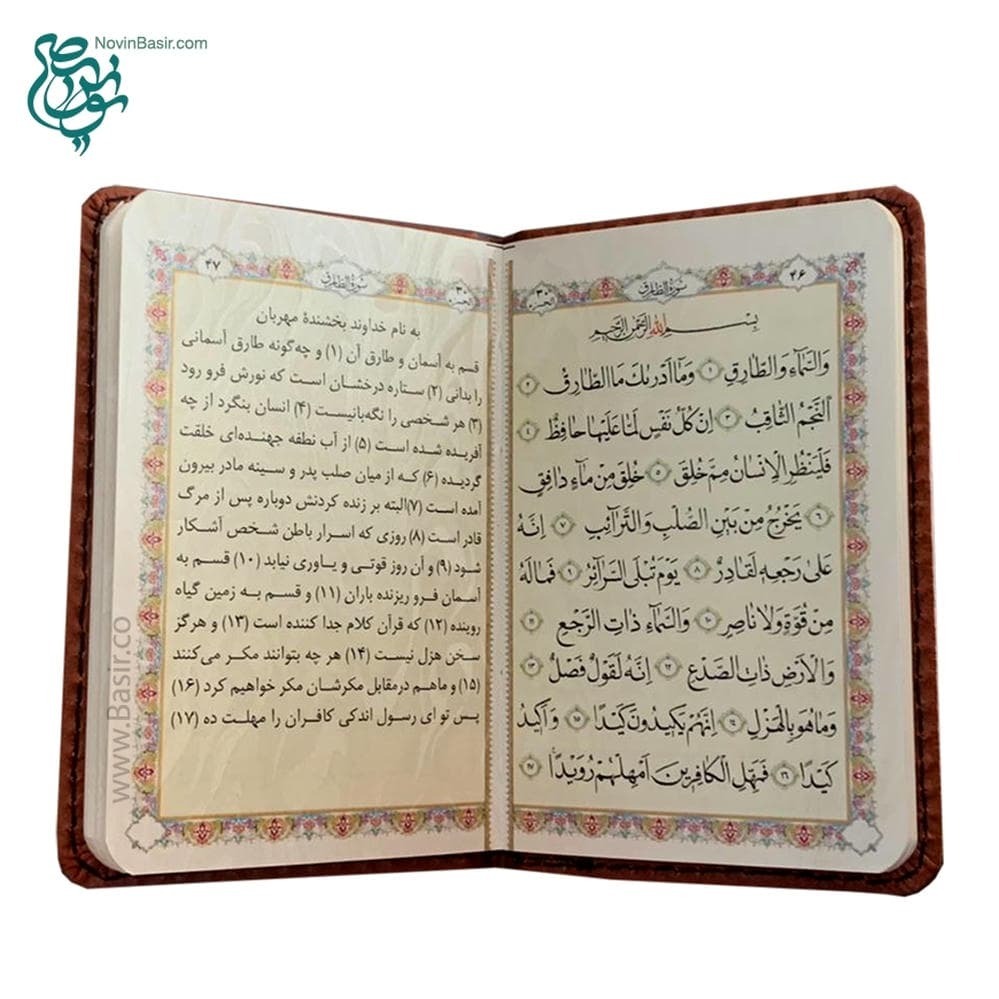 NovinBasir.com
۴۶
سورة الطارق
۳۰
الجزء
بِسْمِ اللهِ الرَّحْمٰنِ الرَّحِیمِ
وَالسَّمَآءِ وَالطّارِقِ ۱ وَمَآ اَدْرٰىكَ مَا الطّارِقُ ۲
اَلنَّجْمُ الثّاقِبُ ۳ اِنْ كُلُّ نَفْسٍ لَمّا عَلَیْها حافِظٌ ۴
فَلْیَنْظُرِ الْاِنْسانُ مِمَّ خُلِقَ ۵ خُلِقَ مِنْ مآءٍ دافِقٍ
۶ یَخْرُجُ مِنْ بَیْنِ الصُّلْبِ وَالتَّرآئِبِ ۷ اِنَّهُ
عَلىٰ رَجْعِهِ لَقادِرٌ ۸ یَوْمَ تُبْلَى السَّرآئِرُ ۹ فَمالَهُ
مِنْ قُوَّةٍ وَلا ناصِرٍ ۱۰ وَالسَّمآءِ ذاتِ الرَّجْعِ ۱۱
وَالْاَرْضِ ذاتِ الصَّدْعِ ۱۲ اِنَّهُ لَقَوْلٌ فَصْلٌ ۱۳
وَما هُوَ بِالْهَزْلِ ۱۴ اِنَّهُمْ یَكیدُونَ كَیْدًا ۱۵ وَاَكیدُ
كَیْدًا ۱۶ فَمَهِّلِ الْكافِرینَ اَمْهِلْهُمْ رُوَیْدًا ۱۷
۳۰
الجزء
سورة الطارق
۴۷
به نام خداوند بخشندهٔ مهربان
قسم به آسمان و طارق آن (۱) و چه‌گونه طارق آسمانی
را بدانی (۲) ستاره درخشان است که نورش فرو رود
(۳) هر شخصی را نگه‌بانیست (۴) انسان بنگرد از چه
آفریده شده است (۵) از آب نطفه جهنده‌ای خلقت
گردیده (۶) که از میان صلب پدر و سینه مادر بیرون
آمده است (۷)البته بر زنده کردنش دوباره پس از مرگ
قادر است (۸) روزی که اسرار باطن شخص آشکار
شود (۹) و آن روز قوتی و یاوری نیابد (۱۰) قسم به
آسمان فرو ریزنده باران (۱۱) و قسم به زمین گیاه
روینده (۱۲) که قرآن کلام جدا کننده است (۱۳) و هرگز
سخن هزل نیست (۱۴) هر چه بتوانند مکر می‌کنند
(۱۵) و ماهم درمقابل مکرشان مکر خواهیم کرد (۱۶)
پس تو ای رسول اندکی کافران را مهلت ده (۱۷)
www.Basir.co